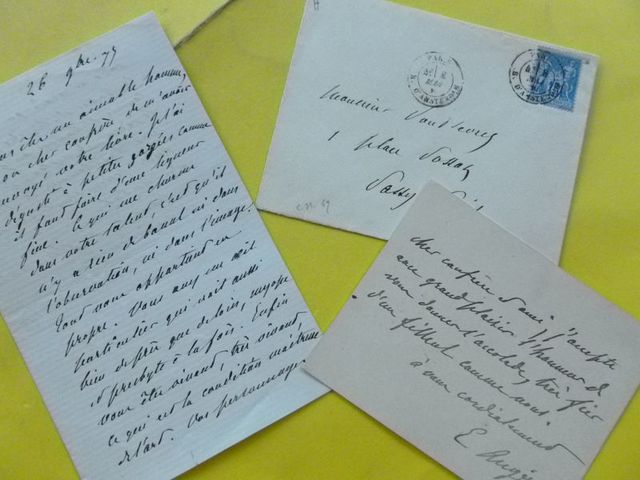 26 9bre 77
êtes un aimable homme,
mon cher confrère de m'avoir
envoyé votre livre. Je l'ai
dégusté à petites gorgées comme
il faut faire d'une liqueur
fine. Ce qui me charme
dans votre talent, c'est qu'il
n'y a rien de banal ni dans
l'observation, ni dans l'image.
Tout vous appartient en
propre. Vous avez un œil
particulier qui voit aussi
bien de près que de loin, myope
et presbyte à la fois. Enfin
vous êtes vivant, très vivant,
ce qui est la condition maîtresse
de l'art. Vos personnages
PARIS
R. D'AMSTERDAM
PARIS
R. D'AMSTERDAM
Monsieur
1 place Possoz
Passy
cher confrère et ami, j'accepte
avec grand plaisir l'honneur de
vous donner l'accolade, très fier
d'un filleul comme vous.
à vous cordialement
E Augier